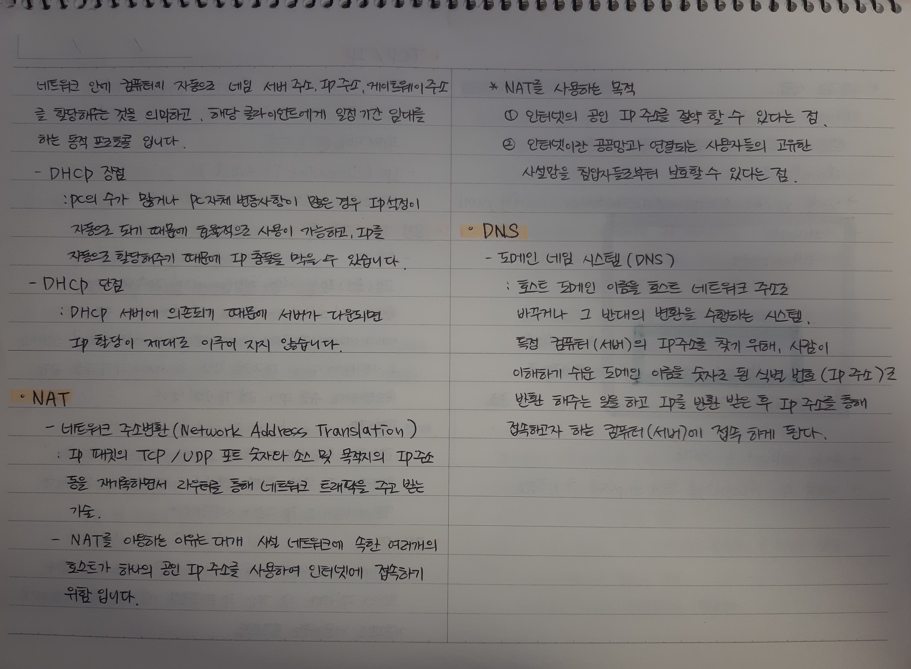 네트워크 안에 컴퓨터에 자동으로 네임 서버 주소, IP주소, 게이트웨이 주소
를 할당해주는 것을 의미하고, 해당 클라이언트에게 일정 기간 임대를
하는 동적 프로토콜 입니다.
- DHCP 장점
: PC의 수가 많거나 PC자체 변동사항이 많은 경우 IP설정이
자동으로 되기 때문에 효율적으로 사용이 가능하고, IP를
자동으로 할당해주기 때문에 IP 충돌을 막을 수 있습니다.
- DHCP 단점
: DHCP 서버에 의존되기 때문에 서버가 다운되면
IP 할당이 제대로 이루어 지지 않습니다.
• NAT
- 네트워크 주소변환 (Network Address Translation)
: IP 패킷의 TCP / UDP 포트 숫자와 소스 및 목적지의 IP주소
등을 재기록하면서 라우터를 통해 네트워크 트래픽을 주고 받는
기술.
- NAT를 이용하는 이유는 대개 사설 네트워크에 속한 여러개의
호스트가 하나의 공인 IP주소를 사용하여 인터넷에 접속하기
위함 입니다.
* NAT를 사용하는 목적
① 인터넷의 공인 IP주소를 절약 할 수 있다는 점.
② 인터넷이란 공공망과 연결되는 사용자들의 고유한
사설망을 침입자들로부터 보호할 수 있다는 점.
• DNS
- 도메인 네임 시스템 (DNS)
: 호스트 도메인 이름을 호스트 네트워크 주소로
바꾸거나 그 반대의 변환을 수행하는 시스템.
특정 컴퓨터(서버)의 IP주소를 찾기 위해, 사람이
이해하기 쉬운 도메인 이름을 숫자로 된 식별 번호 (IP 주소)로
변환 해주는 일을 하고 IP를 반환 받은 후 IP 주소를 통해
접속하고자 하는 컴퓨터(서버)에 접속 하게 된다.